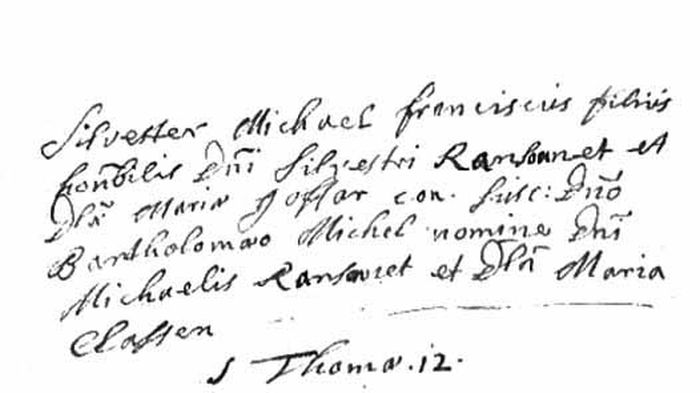 Silvester Michael franciscus filius
honbilis Dni Silvestri Ransonnet et
Dlâ Maria goffar con. susc: Dño
Bartholomæo Michel nomine Dni
Michaelis Ransonet et Dlâ Maria
Classen
S Thomæ. 12.